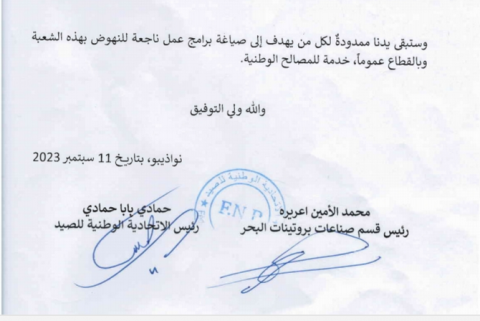 وستبقى يدنا ممدودةً لكل من يهدف إلى صياغة برامج عمل ناجعة للنهوض بهذه الشعبة
وبالقطاع عموماً، خدمة للمصالح الوطنية.
والله ولي التوفيق
نواذيبو، بتاريخ 11 سبتمبر 2023
الاتحادية الوطنية للصيد
F.N.P
محمد الأمين اعريره
رئيس قسم صناعات بروتينات البحر
حمادي بابا حمادي
رئيس الاتحادية الوطنية للصيد